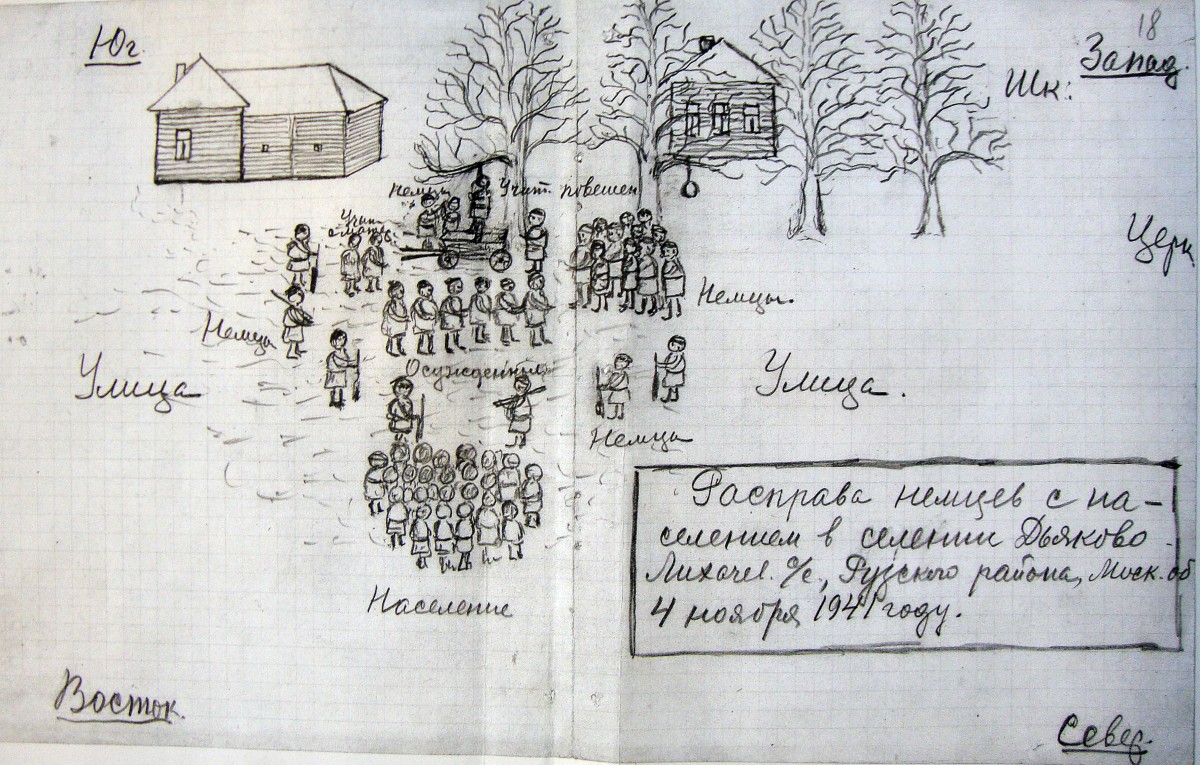 18
Юг.
Запад.
Шк:
Немцы
Учит. повешен
Учит.
Церк
Немцы.
Немцы
Осужденные
Улица
Улица.
Немцы
Расправа немцев с на-
селением в селении Дьяково
Лихачев. с/с, Рузского района, Моск. об
4 ноября 1941 году.
Население
Восток.
Север.